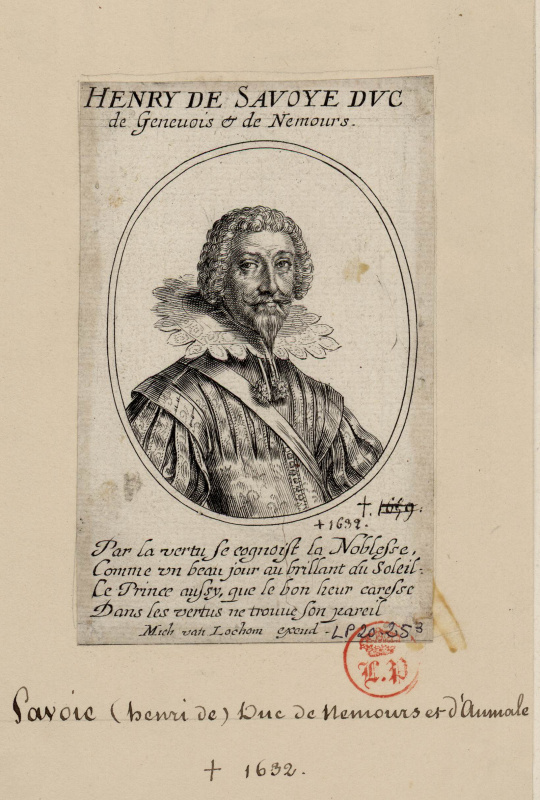 HENRY DE SAVOYE DVC
de Geneuois & de Nemours.
†. 1659.
+ 1632.
Par la vertu se cognoist la Noblesse,
Comme vn beau jour au brillant du Soleil:
Le Prince aussy, que le bon heur caresse
Dans les vertus ne trouue son pareil
Mich van Lochom excud - LP 20-25 3
L.P
Savoie (henri de) Duc de Nemours et d'Aumale
† 1632.